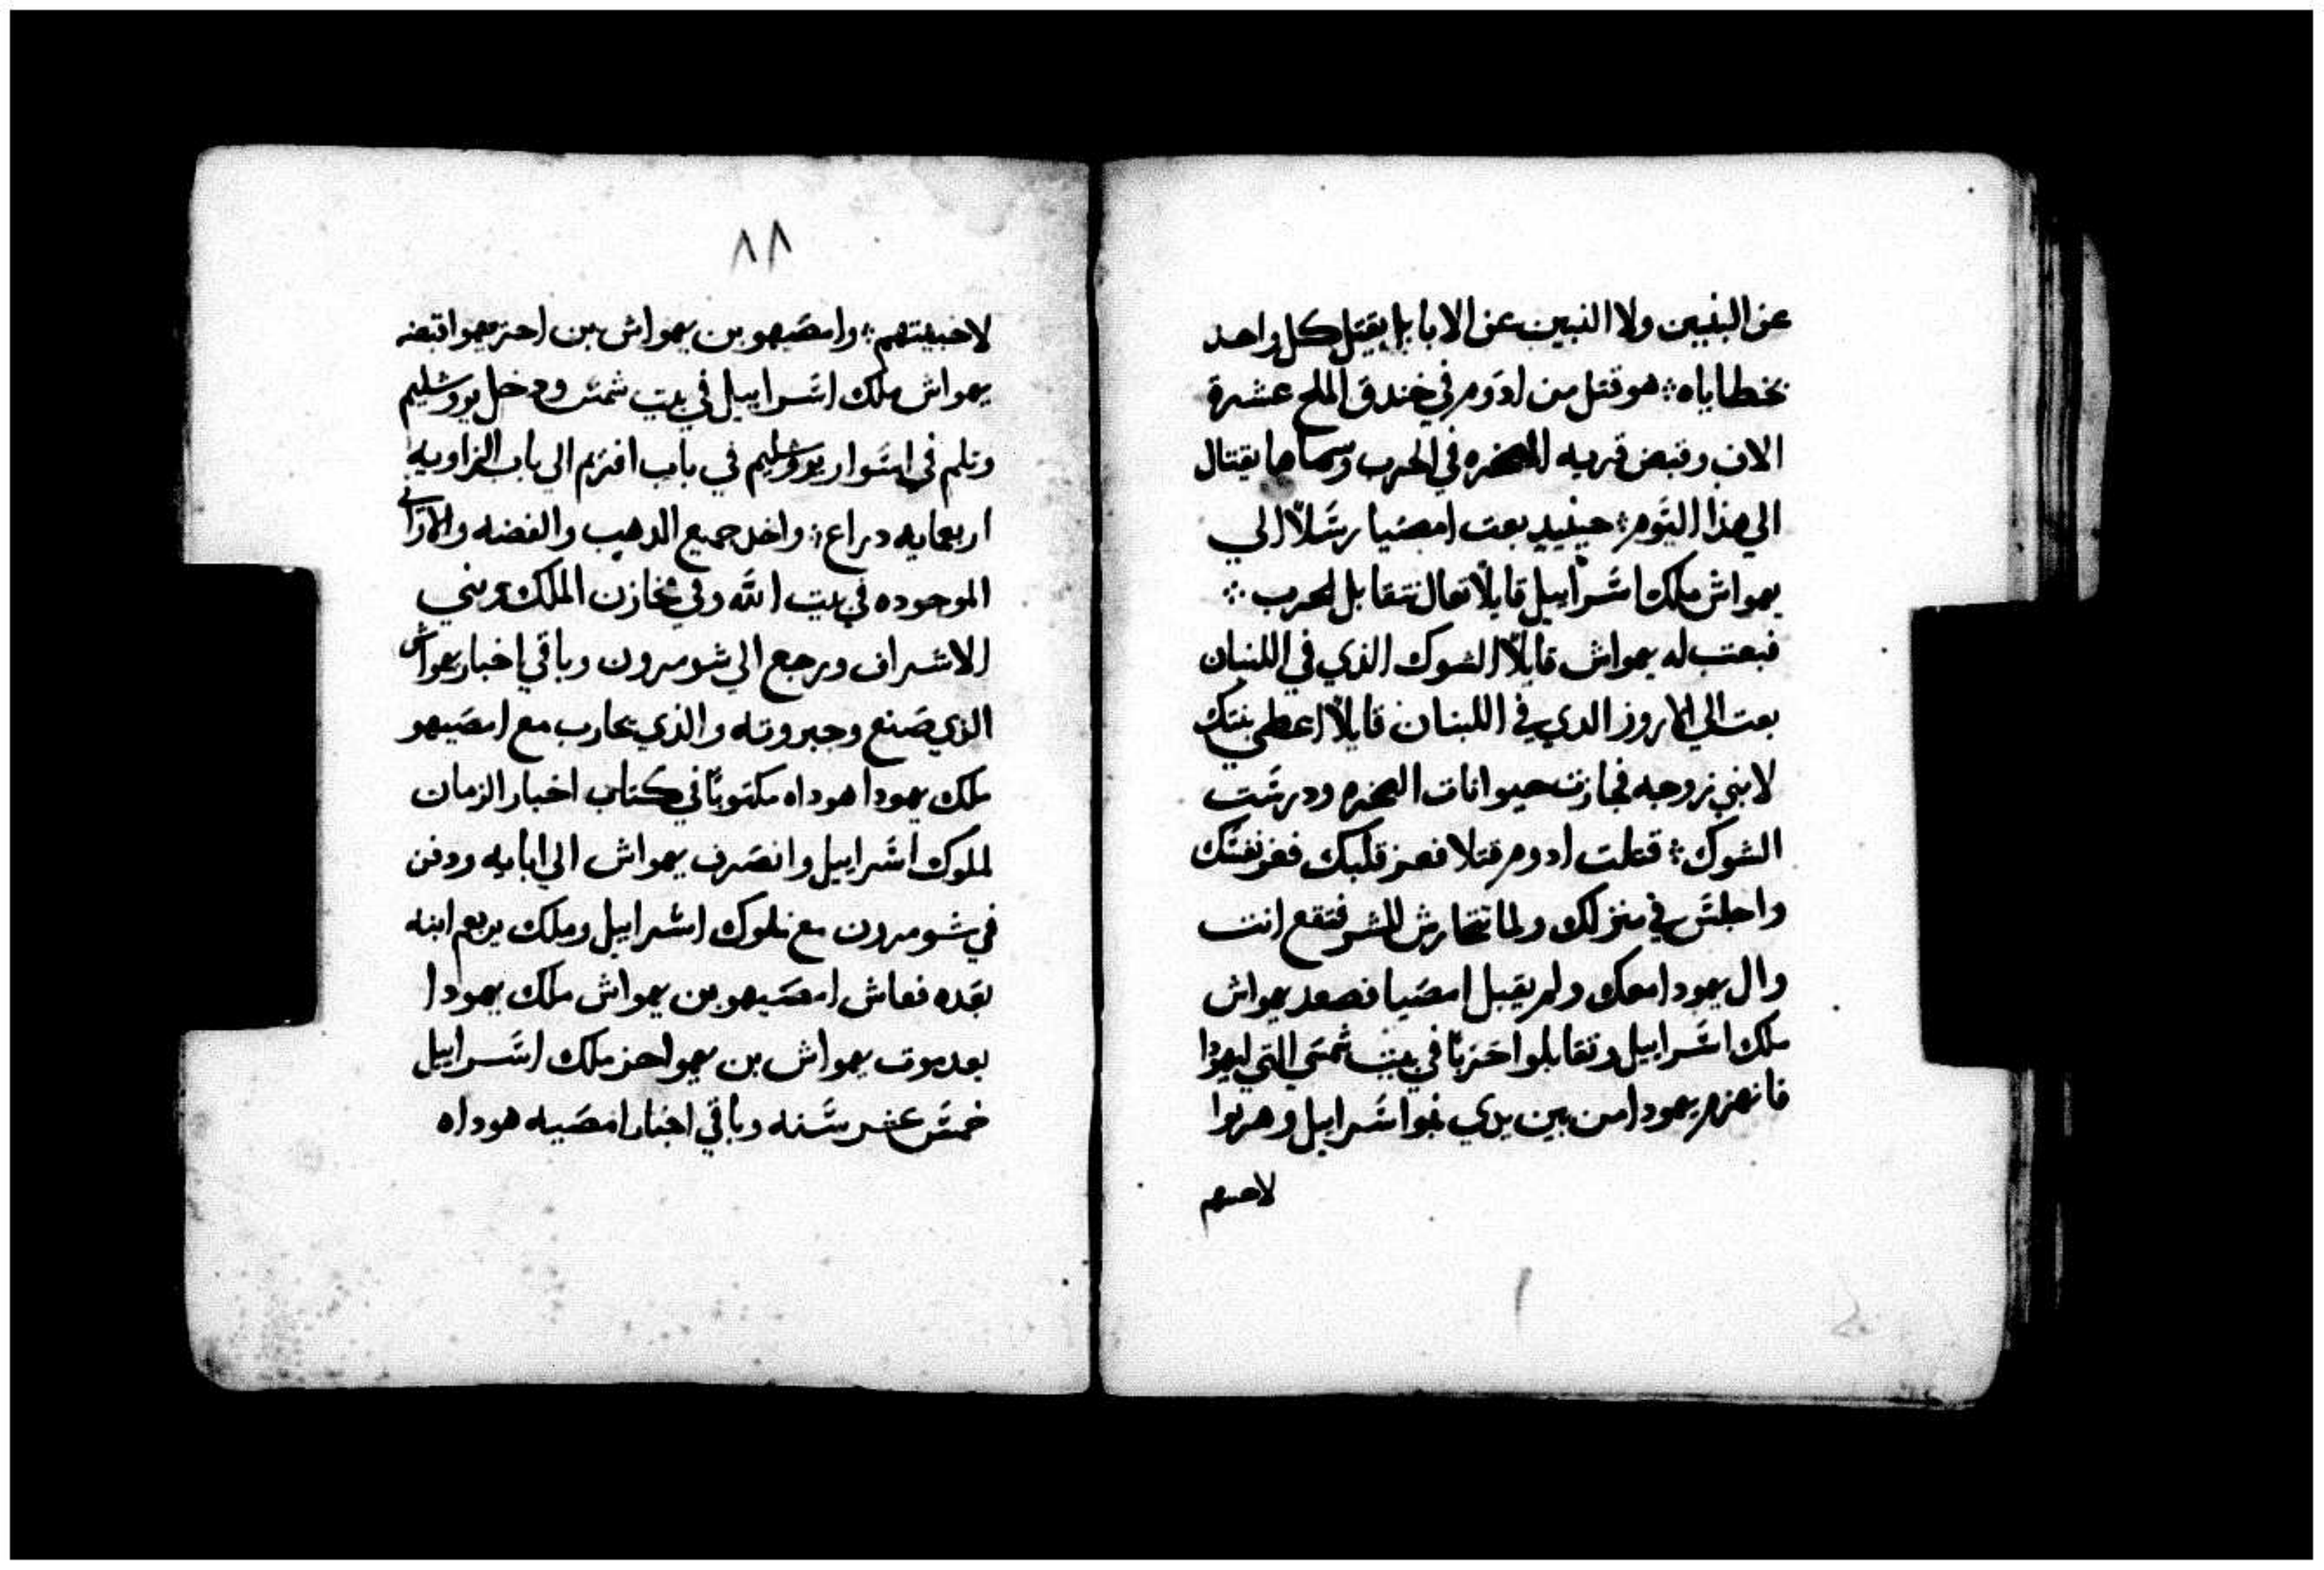 عن البنيين ولا البنين عن الابا بل يقتل كل واحد
بخطاياه ⁘ هو قتل من ادوم في خندق الملح عشرة
الاف وقبض قريه الصخره في الحرب وسماها يقتال
الي هذا اليوم ⁘ حينيد بعت امصيا رسلاً الي
يهواش ملك اسراييل قايلاً تعال نتقابل لحرب ⁘
فبعت له يهواش قايلاً الشوك الذي في اللبنان
بعت الي الاروز الدي في اللبنان قايلاً اعطي بنتك
لابني زوجه فجازت حيوانات الصخره ودرست
الشوك ⁘ قتلت ادوم قتلا فعز قلبك فعز نفسك
واجلس في منزلك ولما تتحارش للشر فتقع انت
وال يهودا معك ولم يقبل امصيا فصعد يهواش
ملك اسراييل وتقابلوا حزبًا في بيت شمس التي ليهودا
فانهزم يهودا من بين يدي بنوا اسراييل وهربوا
لاخبيتهم
٨٨
لاخبيتهم ⁘ وامصيهو بن يهواش بن احزيهوا قبضه
يهواش ملك اسراييل في بيت شمس ودخل يورشليم
وتلم في اسوار يورشليم في باب افريم الي باب الزاويه
اربعمايه دراع ⁘ واخد جميع الدهب والفضه والاواني
الموجوده في بيت الله وفي مخازن الملك وبني
الاشراف ورجع الي شومرون وباقي اخبار يهواش
الذي صنع وجبروته والذي يحارب مع امصيهو
ملك يهودا هوداه مكتوبًا في كتاب اخبار الزمان
لملوك اسراييل وانصرف يهواش الي ابايه ودفن
في شومرون مع ملوك اسراييل وملك يربعم ابنه
بعده فعاش امصيهو بن يهواش ملك يهودا
بعد موت يهواش بن يهواحز ملك اسراييل
خمس عشر سنه وباقي اخبار امصيه هوداه